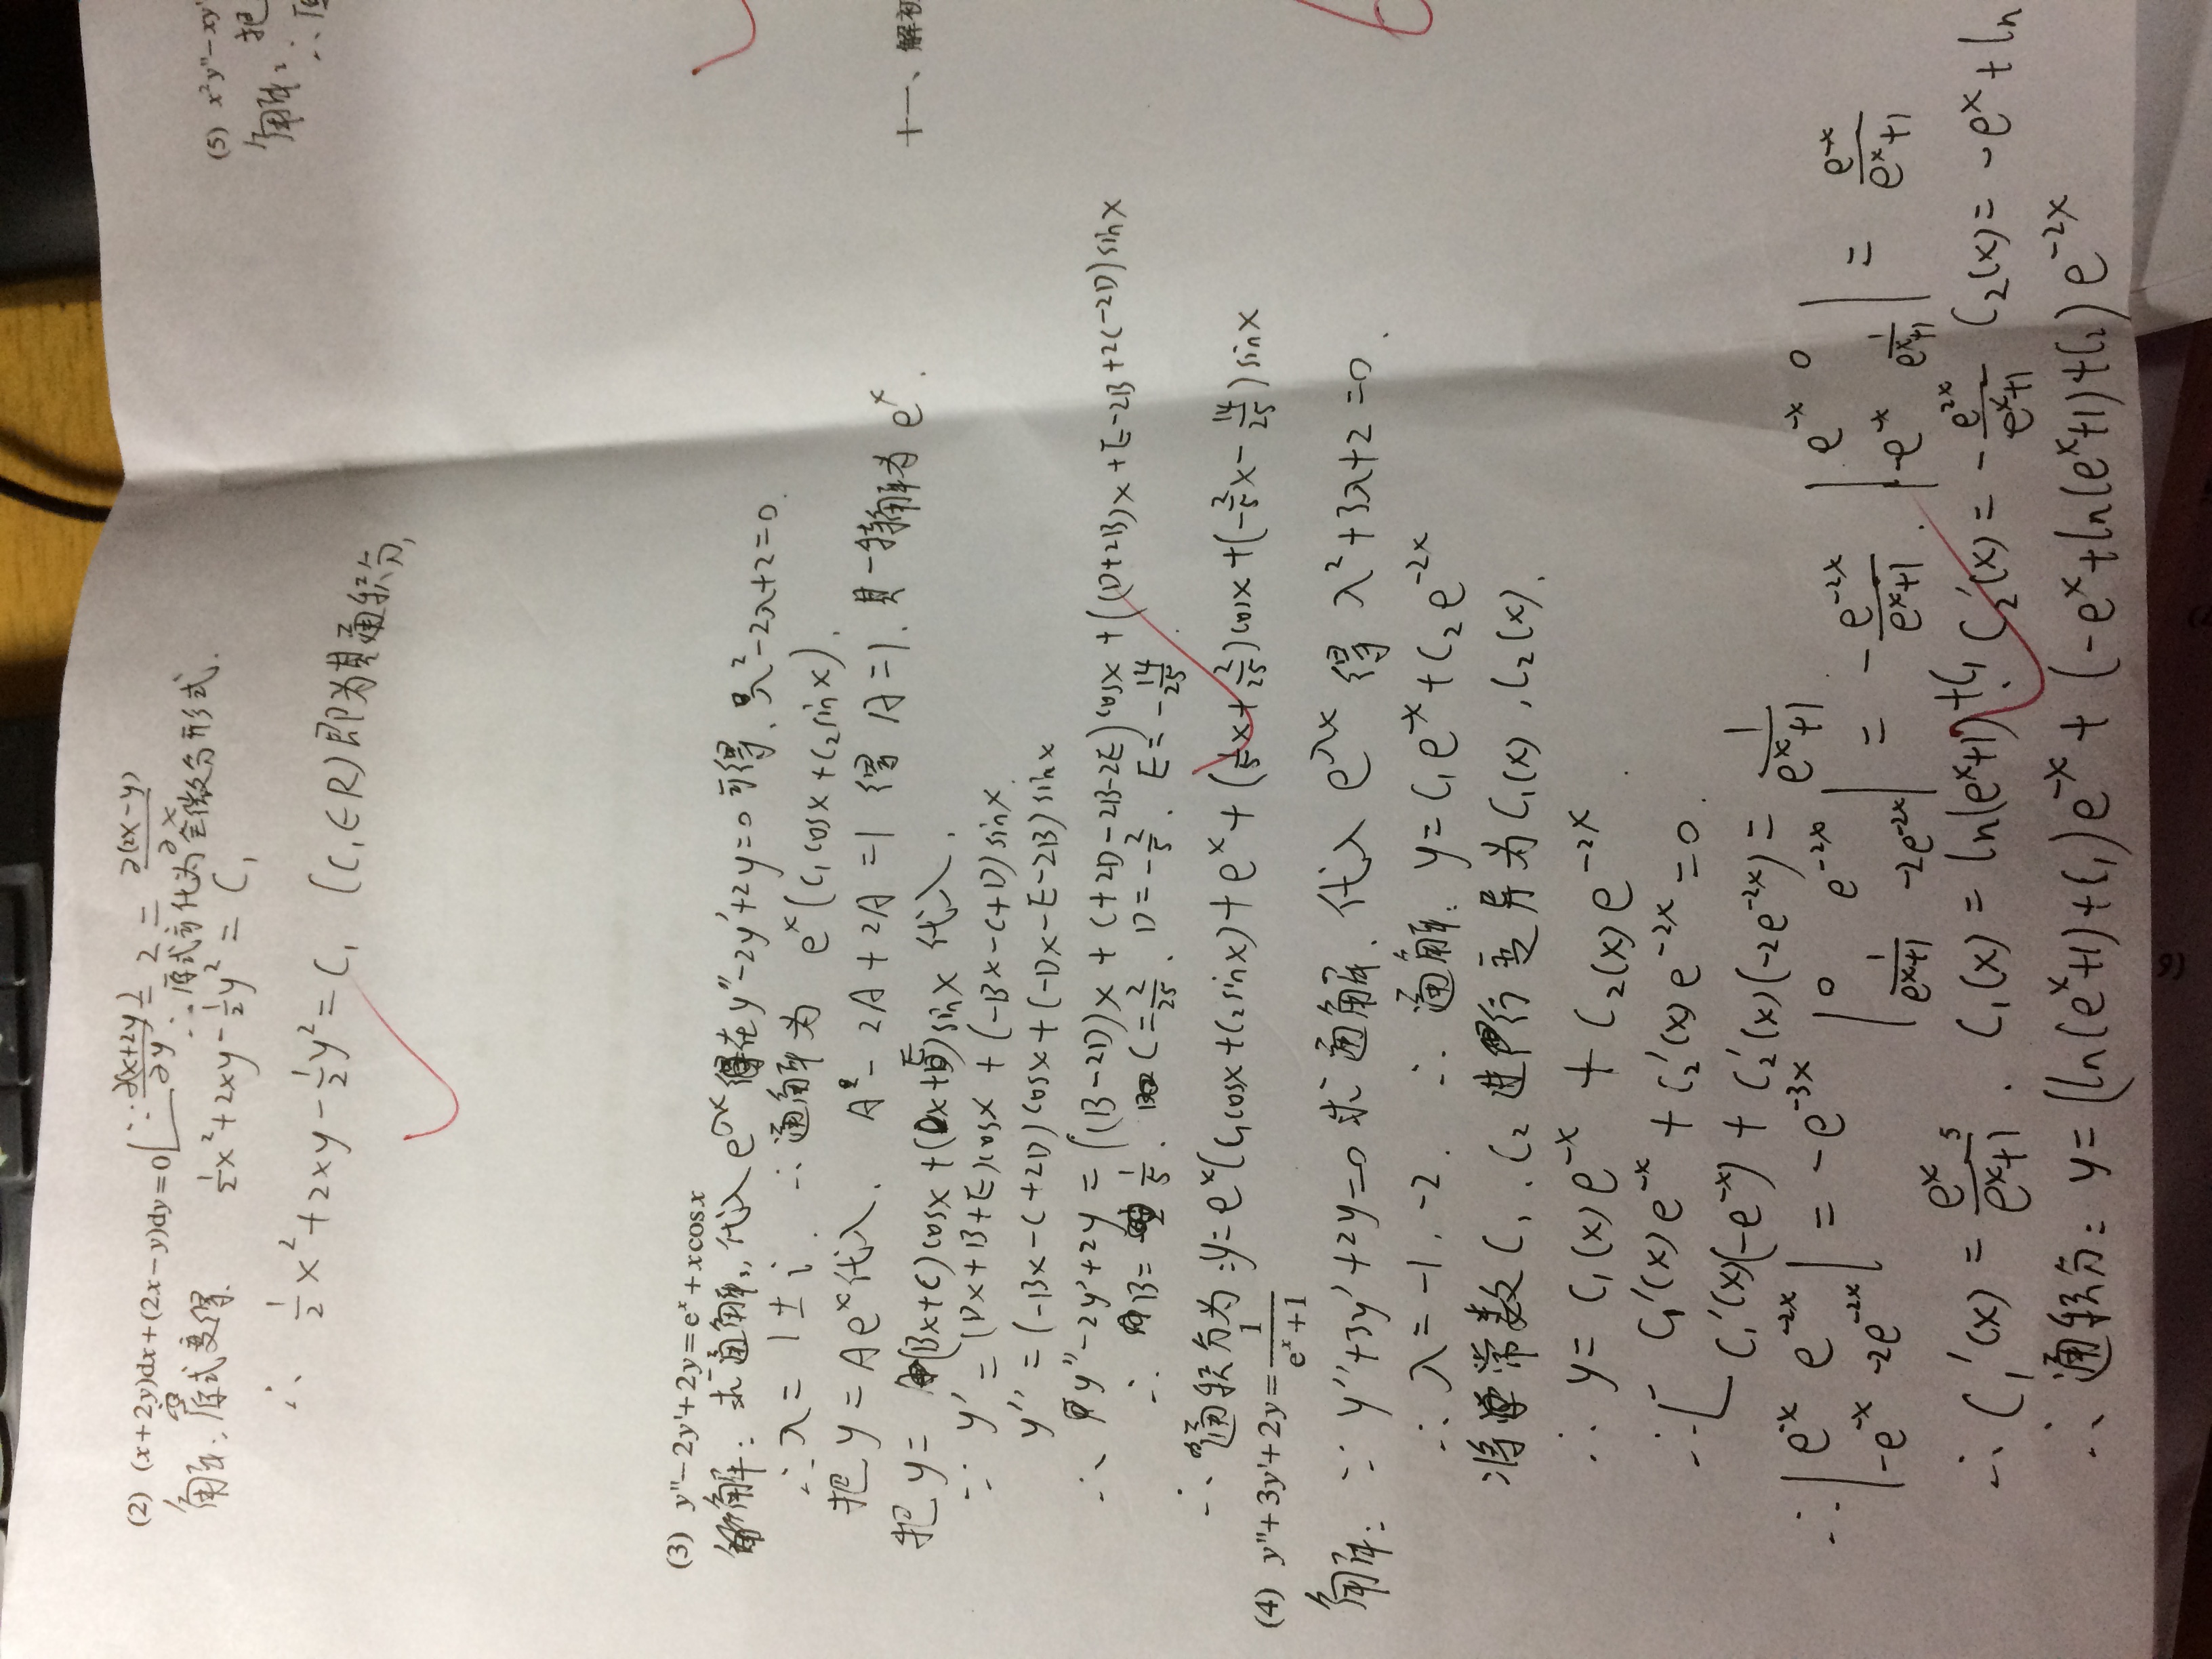 (2) (x+2y)dx+(2x−y)dy=0 ∵ ∂(x+2y)/∂y = 2 = ∂(2x−y)/∂x
∴ 原式可化为全微分形式.
解: 原式变得. ½x²+2xy−½y² = C₁
∴ ½x²+2xy−½y² = C₁ (C₁∈R) 即为其通积分,
(3) y''−2y'+2y=eˣ+xcosx
解: 求通解, 代入 e^λx 在 y''−2y'+2y=0 可得. λ²−2λ+2=0.
∴ λ = 1±i. ∴ 通解为 eˣ(C₁cosx+C₂sinx).
把 y = Aeˣ代入. A − 2A + 2A = 1 得 A=1. 其一特解为 eˣ.
把 y = (Bx+C)cosx+(Dx+E)sinx 代入.
∵ y' = (Dx+B+E)cosx + (−Bx−C+D)sinx.
y'' = (−Bx−C+2D)cosx+(−Dx−E−2B)sinx
∴ y''−2y'+2y = ((B−2D)x + C+2D−2B−2E)cosx + ((D+2B)x+E−2B+2C−2D)sinx
∴ B= 1/5. C=2/25. D=−2/5. E=−14/25.
∴ 通积分为: y=eˣ(C₁cosx+C₂sinx)+eˣ+(1/5x+2/25)cosx+(−2/5x−14/25)sinx
(4) y''+3y'+2y=1/(eˣ+1)
解: ∵ y''+3y'+2y=0 求通解. 代入 e^λx 得 λ²+3λ+2=0.
∴ λ=−1. −2. ∴ 通解: y=C₁e⁻ˣ+C₂e⁻²ˣ
将常数C₁、C₂进行变异为C₁(x), C₂(x).
∴ y= C₁(x)e⁻ˣ + C₂(x)e⁻²ˣ.
∴ C₁'(x)e⁻ˣ + C₂'(x)e⁻²ˣ=0.
C₁'(x)(−e⁻ˣ) + C₂'(x)(−2e⁻²ˣ) = 1/(eˣ+1).
∴ |e⁻ˣ e⁻²ˣ; −e⁻ˣ −2e⁻²ˣ| = −e⁻³ˣ |0 e⁻²ˣ; 1/(eˣ+1) −2e⁻²ˣ| = −e⁻²ˣ/(eˣ+1). |e⁻ˣ 0; −e⁻ˣ 1/(eˣ+1)| = e⁻ˣ/(eˣ+1)
∴ C₁'(x) = eˣ/(eˣ+1). C₁(x) = ln(eˣ+1)+C₁. C₂'(x) = −e²ˣ/(eˣ+1) C₂(x)= −eˣ+ln
∴ 通积分: y=(ln(eˣ+1)+C₁)e⁻ˣ + (−eˣ+ln(eˣ+1)+C₂)e⁻²ˣ
(5) x²y''−xy'
解: 把
∴
十一、解初